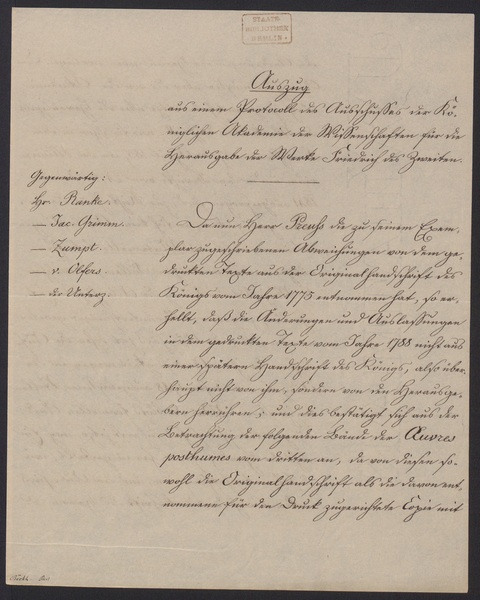 STAATS-
BIBLIOTHEK
BERLIN
Auszug
aus einem Protocoll des Ausschusses der Kö-
niglichen Akademie der Wissenschaften für die
Herausgabe der Werke Friedrich des Zweiten.
Gegenwärtig:
Hr. Ranke.
— Jac. Grimm.
— Zumpt.
— v. Olfers
— do Unterz.
Da nun Herr Preuß die zu seinem Exem-
plar zugeschriebenen Abweichungen von dem ge-
druckten Texte aus der Originalhandschrift des
Königs vom Jahre 1775 entnommen hat, so er-
hellt, daß die Änderungen und Auslassungen
in dem gedruckten Texte vom Jahre 1788 nicht aus
einer spätern Handschrift des Königs, also über-
haupt nicht von ihm, sondern von den Herausge-
bern herrühren; und dies bestätigt sich aus der
Betrachtung der folgenden Bände der Œuvres
posthumes vom dritten an, da von diesen so-
wohl die Originalhandschrift als die davon ent-
nommene für den Druck zugerichtete Copie mit